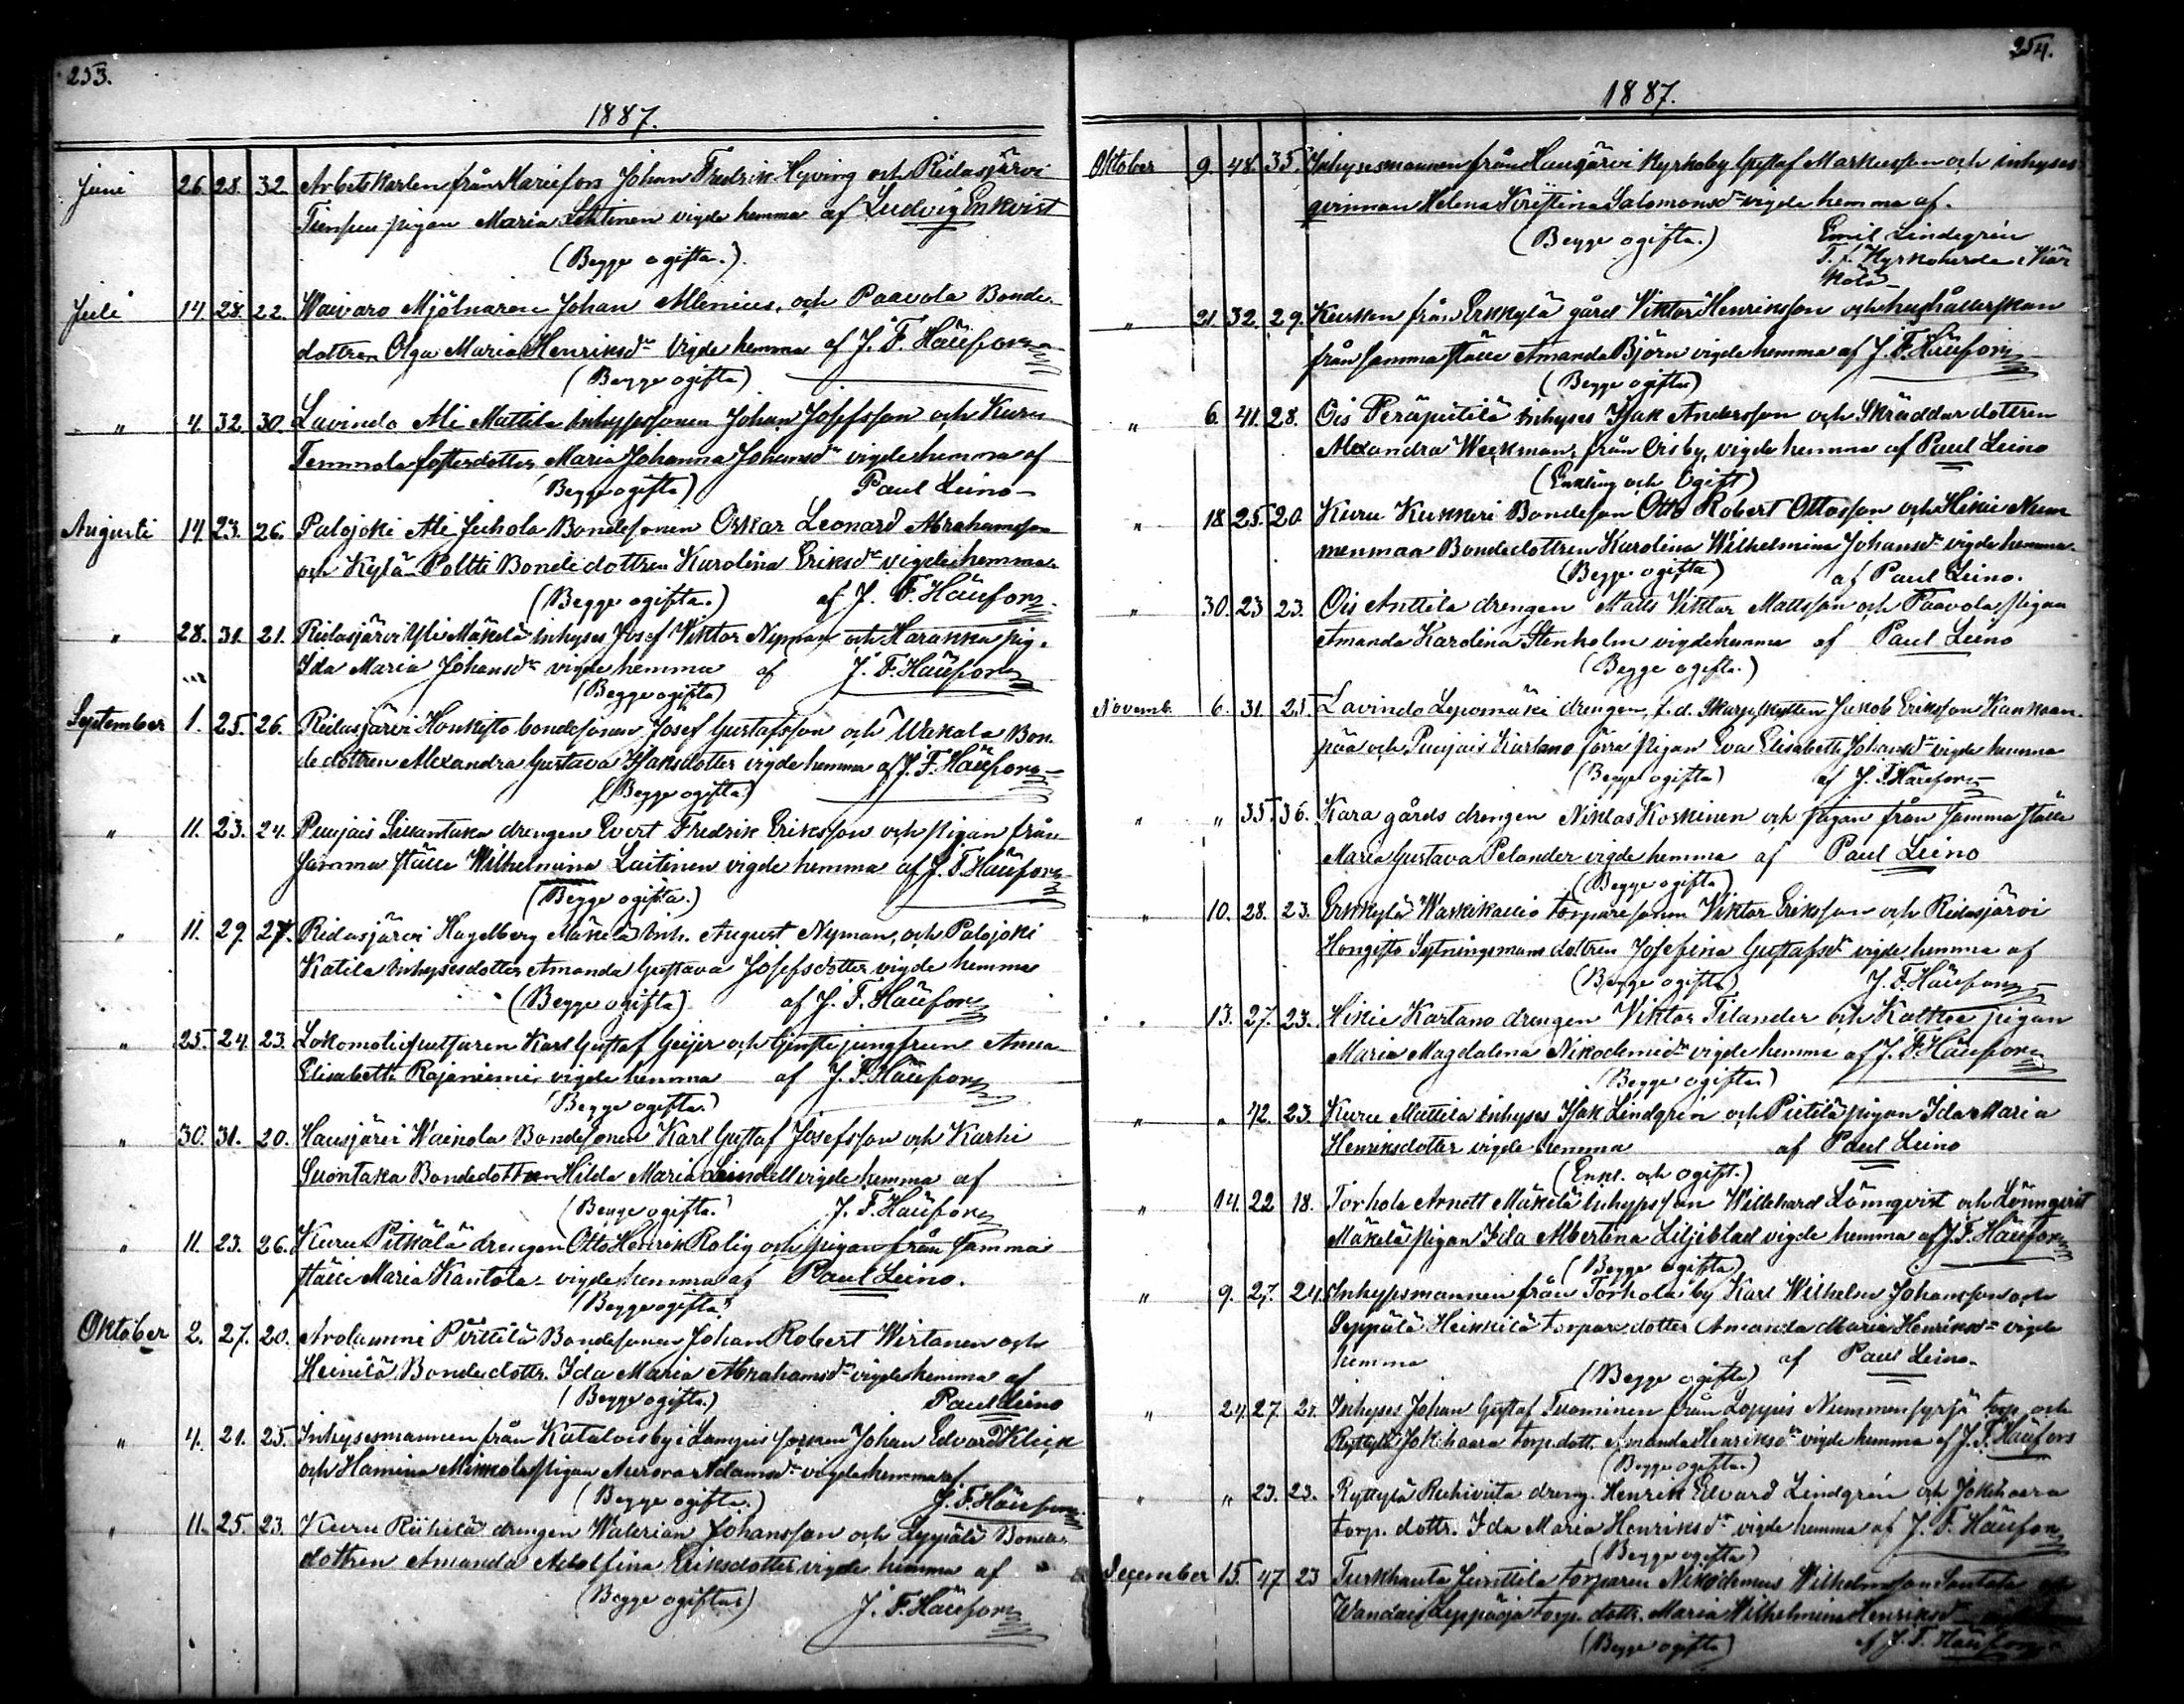 253.
1887.
Juni 26. 28. 32. Arbetskarlen från Mariefors Johan Fredrik Hyving och Ridasjärvi
pigan Maria Lehtinen vigde hemma af Ludvig Enkvist
(Begge ogifta.)
Juli 14 28. 22. Waivaro Mjölnaren Johan Alenius, och Paavola Bonde-
dottren Olga Maria Henriksdr vigde hemma af J. F. Häufors
(Begge ogifta)
" 4. 32. 30. Lavindo Ali Mattila inhysessonen Johan Josefsson och Kuru
Temmola fosterdotter Maria Johanna Johansdr vigde hemma af
(Begge ogifta) Paul Leino
Augusti 14 23. 26. Palojoki Ali Juhola Bondesonen Oskar Leonard Abrahamsson
och Kylä-Poltti Bondedottren Karolina Eriksdr vigde hemma
(Begge ogifta.) af J. F. Häufors
" 28. 31. 21. Ridasjärvi Yli Mäkelä inhyses Josef Viktor Nyman och Harakka pig.
Ida Maria Johansdr vigde hemma af J. F. Häufors
(Begge ogifta)
September 1. 25. 26. Ridasjärvi Honkisto bondesonen Josef Gustafsson och Uckala Bon-
dedottren Alexandra Gustava Isaksdotter vigde hemma af J. F. Häufors
(Begge ogifta)
" 11. 23. 24. Punjais Siivantaka drengen Evert Fredrik Eriksson och pigan från
samma ställe Wilhelmina Laitinen vigde hemma af J. F. Häufors
(Begge ogifta.)
" 11. 29. 27. Ridasjärvi Hagelberg Mäkelä inh. August Nyman, och Palojoki
Katila inhysesdotter Amanda Gustava Josefsdotter vigde hemma
(Begge ogifta) af J. F. Häufors
" 25. 24. 23. Lokomotivputsaren Karl Gustaf Geijer och jungfrun Anna
Elisabeth Rajaniemi vigde hemma af J. F. Häufors
(Begge ogifta.)
" 30. 31. 20. Hausjärvi Wainola Bondesonen Karl Gustaf Josefsson och Karhi
Suontaka Bondedottren Hilda Maria Leindell vigde hemma af
(Begge ogifta.) J. F. Häufors
" 11. 23. 26. Kuru Pitkälä drengen Otto Henrik Rolig och pigan från samma
ställe Maria Kantola vigde hemma af Paul Leino.
(Begge ogifta)
Oktober 2. 27. 20. Arolammi Pirttilä Bondesonen Johan Robert Wirtanen och
Heinilä Bondedottr. Ida Maria Abrahamsdr vigde hemma af
(Begge ogifta.) Paul Leino
" 4. 21. 25. Inhysesmannen från Kataloisby i Lampis socken Johan Edvard Klick
och Hamina Mikkola pigan Aurora Adamsdr vigde hemma af
(Begge ogifta.) J. F. Häufors
" 11. 25. 23. Kuru Riihilä drengen Walerian Johansson och Leppälä Bonde-
dottren Amanda Adolfina Eriksdotter vigde hemma af
(Begge ogifta) J. F. Häufors
254.
1887.
Oktober 9. 48. 35. Inhysesmannen från Hausjärvi Kyrkoby Gustaf Markusson och inhyses
qvinnan Helena Kristina Salomonsdr vigde hemma af.
(Begge ogifta.) Emil Lindegrén
T. f. Kyrkoherde i Kär
kölä
" 21 32. 29. Kusken från Erkkylä gård Viktor Henriksson och hushållerskan
från samma ställe Amanda Björn vigde hemma af J. F. Häufors
(Begge ogifta)
" 6. 41. 28. Ois Peräpiitilä inhyses Isak Andersson och Skräddardottren
Alexandra Weckman, från Oisby, vigde hemma af Paul Leino
(Enkling och Ogift)
" 18 25. 20. Kuru Kukkeri Bondeson Otto Robert Ottosson och Hikiä Num
menmaa Bondedottren Karolina Wilhelmina Johansdr vigde hemma
(Begge ogifta) af Paul Leino.
" 30. 23 23. Ois Anttila drengen Matts Viktor Mattsson och Paavola pigan
Amanda Karolina Stenholm vigde hemma af Paul Leino
(Begge ogifta.)
Novemb. 6. 31. 25. Lavindo Lepomäki drengen, f.d. Skarpskytten Jakob Eriksson Kankaan-
pää och Punjais Kartano pigan Eva Elisabeth Johansdr vigde hemma
(Begge ogifta) af J. F. Häufors
" " 35. 36. Kara gårds drengen Niklas Koskinen och pigan från samma ställe
Maria Gustava Pelander vigde hemma af Paul Leino
(Begge ogifta)
" 10. 28. 23. Erkkylä Waskikallio torparesonen Viktor Eriksson och Ridasjärvi
Hongisto Sytningsmans dottren Josefina Gustafsdr vigde hemma af
(Begge ogifta) J. F. Häufors
" 13. 27. 23. Hikiä Kartano drengen Viktor Tilander och pigan
Maria Magdalena Nikodemidr vigde hemma af J. F. Häufors
(Begge ogifta)
" " 42. 23. Kuru Mattila inhyses Isak Lindgrén och Pietilä pigan Ida Maria
Henriksdotter vigde hemma af Paul Leino
(Enkl. och ogift.)
" 14. 22 18. Torhola Arnott Mäkelä inhysesson Willehard Lönnqvist och Lönnqvist
Mäkelä pigan Ida Albertina Liljeblad vigde hemma af J. F. Häufors
(Begge ogifta)
" 9. 27. 24. Inhysesmannen från Torhola by Karl Wilhelm Johansson och
Seppälä Heikkilä torpardotter Amanda Maria Henriksdr vigde
hemma (Begge ogifta) af Paul Leino.
" 24. 27. 21. Inhyses Johan Gustaf Tuominen från Loppis Nummensyrjä torp och
Ryttylä Jokihaara torpdott. Amanda Henriksdr vigde hemma af J. F. Häufors
(Begge ogifta.)
" " 23. 23. Ryttylä Ruhiviita dreng. Henrik Edvard Lindgrén och Jokihaara
torp. dottr. Ida Maria Henriksdr vigde hemma af J. F. Häufors
(Begge ogifta)
December 15. 47 23 Turkhauta Junttila torparen Nikodemus Wilhelmsson Santala
Wandais Leppäoja torp. dottr. Maria Wilhelmina Henriksdr
(Begge ogifta) af J. F. Häufors